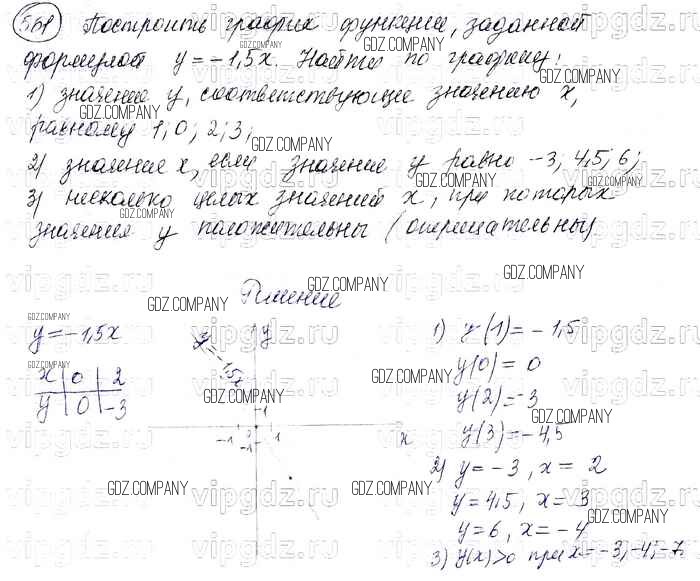 561 Построить график функции, заданной
формулой y = -1,5x. Найти по графику:
1) значение y, соответствующее значению x,
равному 1; 0; 2; 3;
2) значение x, если значение y равно -3; 4,5; 6;
3) несколько целых значений x, при которых
значения y положительны (отрицательны)
Решение
y = -1,5x
x | 0 | 2
y | 0 | -3
y = -1,5x
y
x
1
-1
1
-1
1) y(1) = -1,5
y(0) = 0
y(2) = -3
y(3) = -4,5
2) y = -3, x = 2
y = 4,5, x = 3
y = 6, x = -4
3) y(x) > 0 при x = -3; -4; -7
GDZ.COMPANY
vipgdz.ru